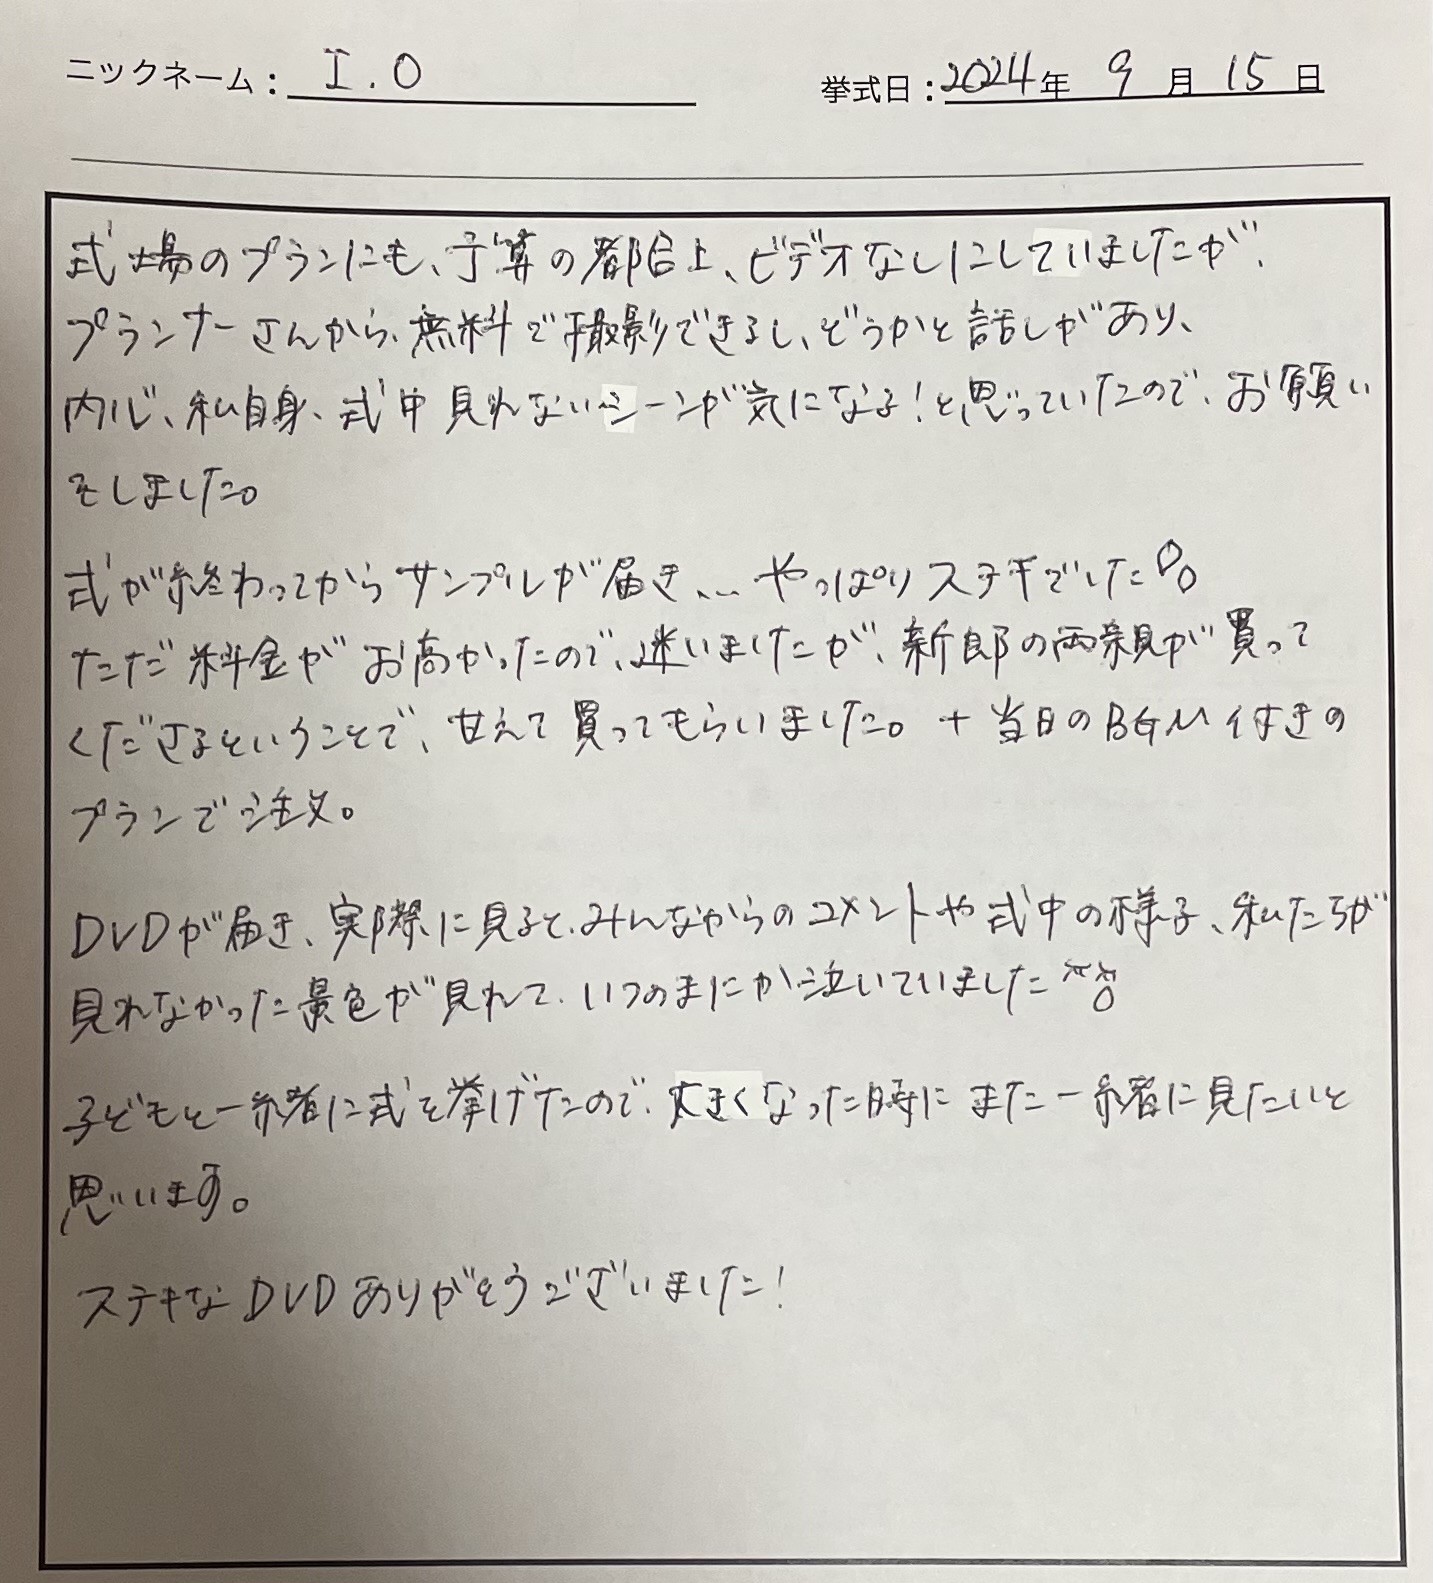 ニックネーム： I.O
挙式日：2024年 9月 15日
式場のプランにも、予算の都合上、ビデオなしにしていましたが、
プランナーさんから、無料で撮影できるし、どうかと話しがあり、
内心、私自身、式中見れないシーンが気になる！と思っていたので、お願い
をしました。
式が終わってからサンプルが届き、… やっぱりステキでした
ただ料金がお高かったので、迷いましたが、新郎の両親が買って
くださるということで、甘えて買ってもらいました。+当日のBGM付きの
プランで注文。
DVDが届き、実際に見ると、みんなからのコメントや式中の様子、私たちが
見れなかった景色が見れて、いつのまにか泣いていました
子どもと一緒に式を挙げたので、大きくなった時にまた一緒に見たいと
思います。
ステキなDVDありがとうございました！